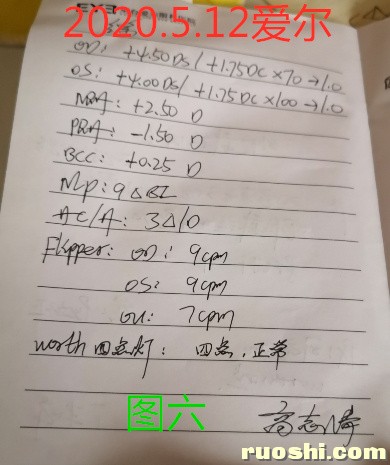 2020.5.12爱尔
OD: +4.50DS/+1.75DC×70→1.0
OS: +4.00DS/+1.75DC×100→1.0
NRA: +2.50 D
PRA: -1.50 D
BCC: +0.25 D
Np: 9△BI
AC/A: 3△/D
Flipper: OD: 9cpm
OS: 9cpm
OU: 7cpm
Worth四点灯: 四点,正常
图六
ruoshi.com